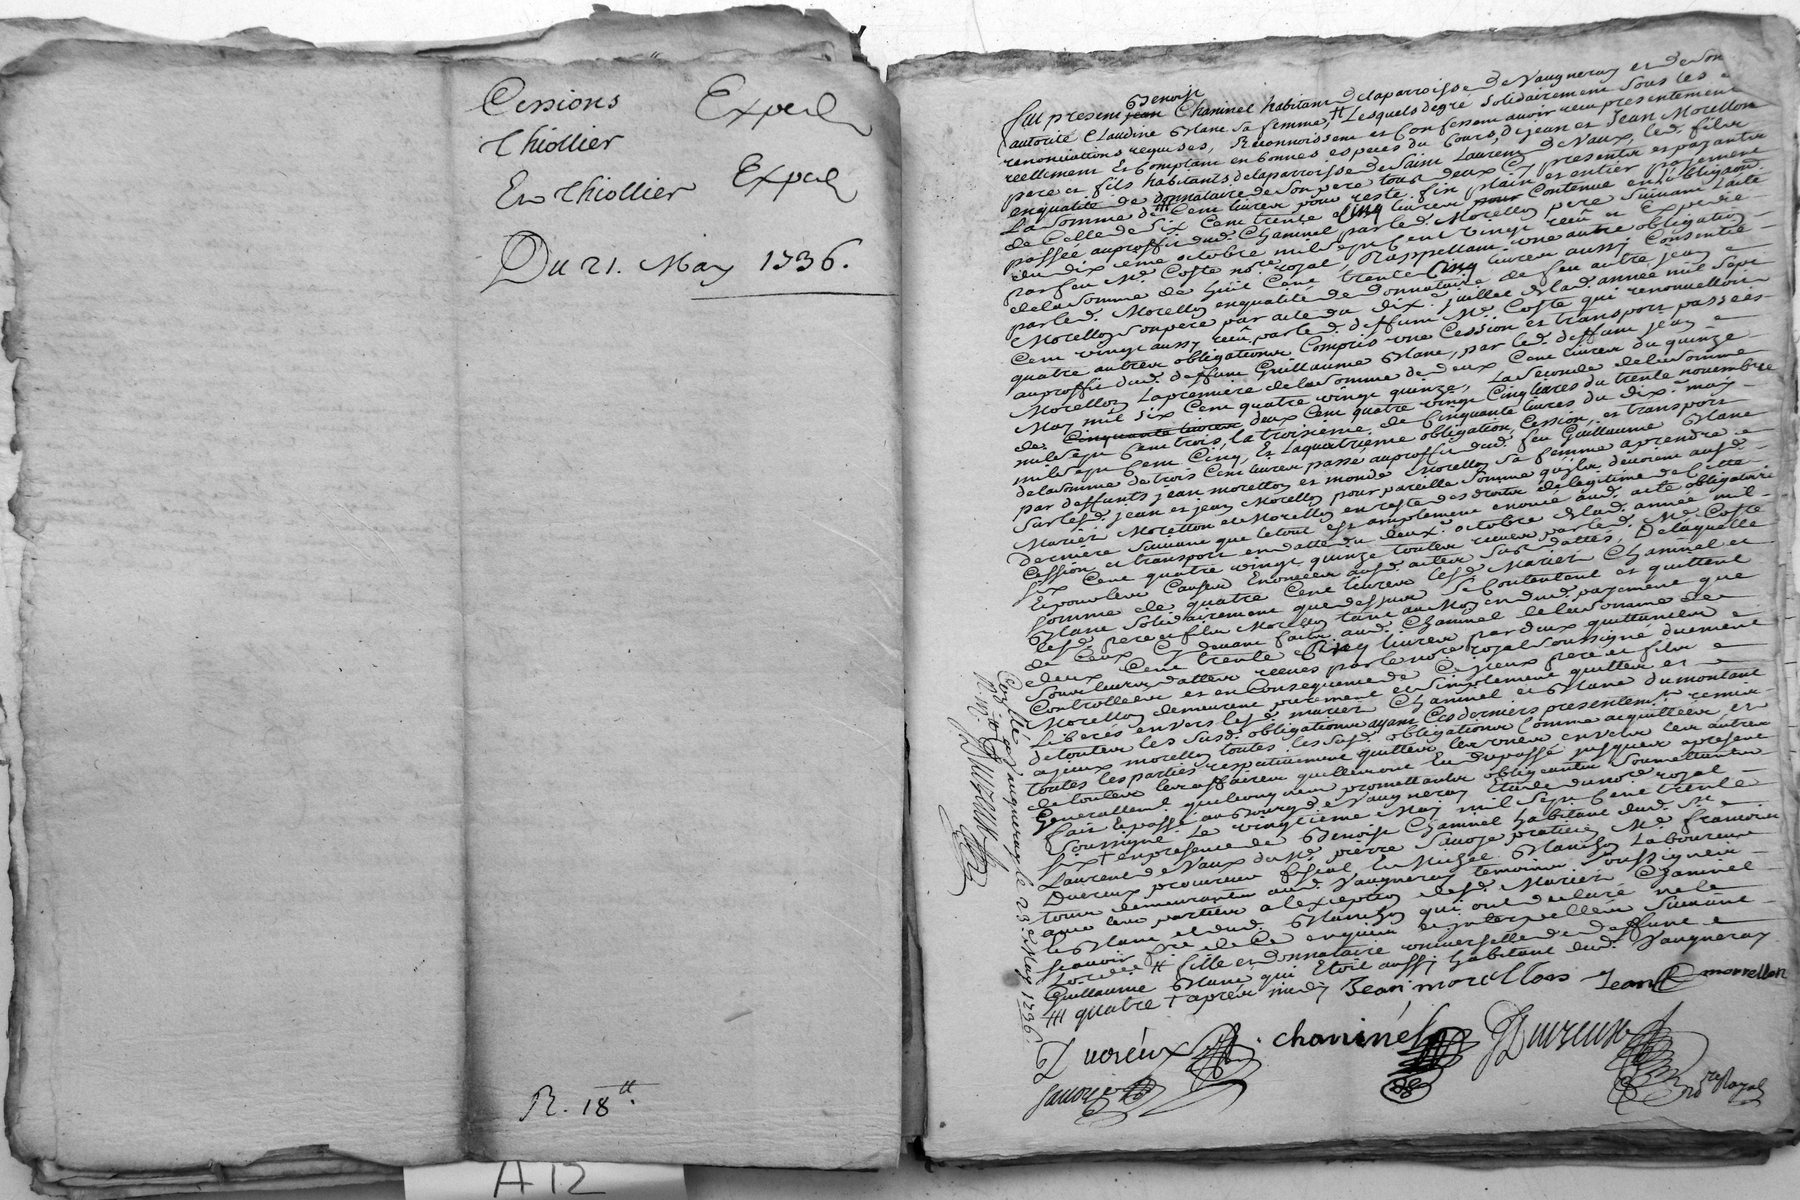 Cessions Exped
Thiollier
Et Thiollier Exped
Du 21. May 1736.
R. 18tt.
A12
Benoist
fut present jean Chaninel habitant de la parroisse de Vaugneray et de son
autorité Claudine Blanc sa femme, # Lesquels de gré solidairement sous les
renonciations requises, Reconnoissent et Confessent avoir receu presentement
reellement Et Comptant en bonnes especes du Cours, de jean et Jean Morellon
pere et fils habitants de la parroisse de Saint Laurent de Vaux, led. fils
en qualité de donnataire de son pere tous deux Cy presents et payants
La somme de Cent livres pour reste fin plain et entier payement
de Celle de six Cent trente Cinq livres pour Contenue en l'obligation
passée au proffit dud. Chaninel par led. Morellon pere suivant l'acte
du dix eme octobre mil sept Cent vingt receu et Expedié
par feu Me. Coste nore. royal, Rappellant une autre obligation
de la somme de huit Cent trente Cinq livres aussy Consentie
par led. Morellon en qualité de donnataire de feu autre jean
Morellon son pere par acte du dix juillet de lad. année mil sept
Cent vingt aussy receu par led. deffunt Me. Coste qui renouvelloit
quatre autres obligations Compris une Cession et transport passées
au proffit dud. deffunt Guillaume Blanc, par led. deffunt jean
Morellon La premiere de la somme de deux Cent livres du quinze
May mil six Cent quatre vingt quinze, La seconde de la somme
de Cinquante livres deux Cent quatre vingt Cinq livres du trente novembre
mil sept Cent trois, la troisieme de Cinquante livres du dix may
mil sept Cent Cinq, Et La quatrieme obligation, Cession, et transport
de la somme de trois Cent livres passé au proffit dud. feu Guillaume Blanc
par deffunts jean morellon et Morellon sa femme a prendre
sur lesd. jean et jean Morellon pour pareille somme qu'ils devoient ausd.
Mariés Morellon et Morellon en reste des droits de legitime de Cette
derniere suivant que le tout est amplement enoncé aud. acte obligatoire
Cession et transport en datte du deux octobre de lad. année mil
six Cent quatre vingt quinze toutes receues par led. Me. Coste
Et pour les Causes Enoncées ausd. actes sus dattés, De laquelle
somme de quatre Cent livres lesd. Mariés Chaninel et
Blanc solidairement que dessus se Contentent et quittent
lesd. pere et fils Morellon tant au moyen dud. payement que
de Ceux Cy devant faits aud. Chaninel de la somme de
deux Cent trente Cinq livres par deux quittances
sous leurs dattes receues par le nore. royal soussigné duement
Controllées et en Consequence de Ce Iceux pere et fils
Morellon demeurent purement et simplement quittes et
Liberés envers lesd. mariés Chaninel et Blanc du montant
de toutes les susd. obligations ayant Ces derniers presentemt. remis
a Iceux morellon toutes les susd. obligations Comme acquittées et
toutes les parties respectivement quittes les unes envers les autres
de toutes les affaires qu'elles ont Eu du passé jusques a present
Generallemt. quelconques promettants obligeants soumettants
fait Et passé au Bourg de Vaugneray Etude du nore. royal
soussigné Le vingtieme May mil sept Cent trente
six † en presence de Benoist Chaninel habitant dud. St.
Laurent de Vaux de Me. pierre Savoye praticien Me. françois
Duereux procureur fiscal, Et Michel Blanchon Laboureur
tous demeurants aud. Vaugneray temoins soussignés
avec les parties a l'exception desd. Mariés Chaninel
et Blanc et dud. Blanchon qui ont declaré ne le
scavoir faire de Ce enquis et interpellés suivant
# fille et donnataire universelle de deffunt
Guillaume Blanc qui Etoit aussy habitant dud. Vaugneray
## quatre † apres midy Jean morellon Jean morrellon
Duereux Chaninel
Savoye
nore Royal
Conllé a Vaugneray le 23e. May 1736.